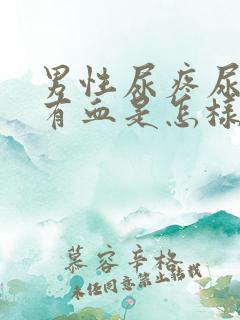 男性尿疼尿
有血是怎样
慕容辛格
未经同意禁止转载